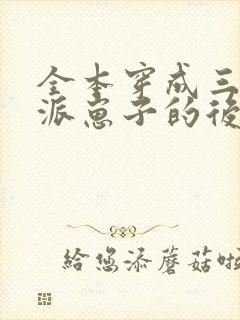 全本穿成三
派崽子的後
給您添蘑菇啦